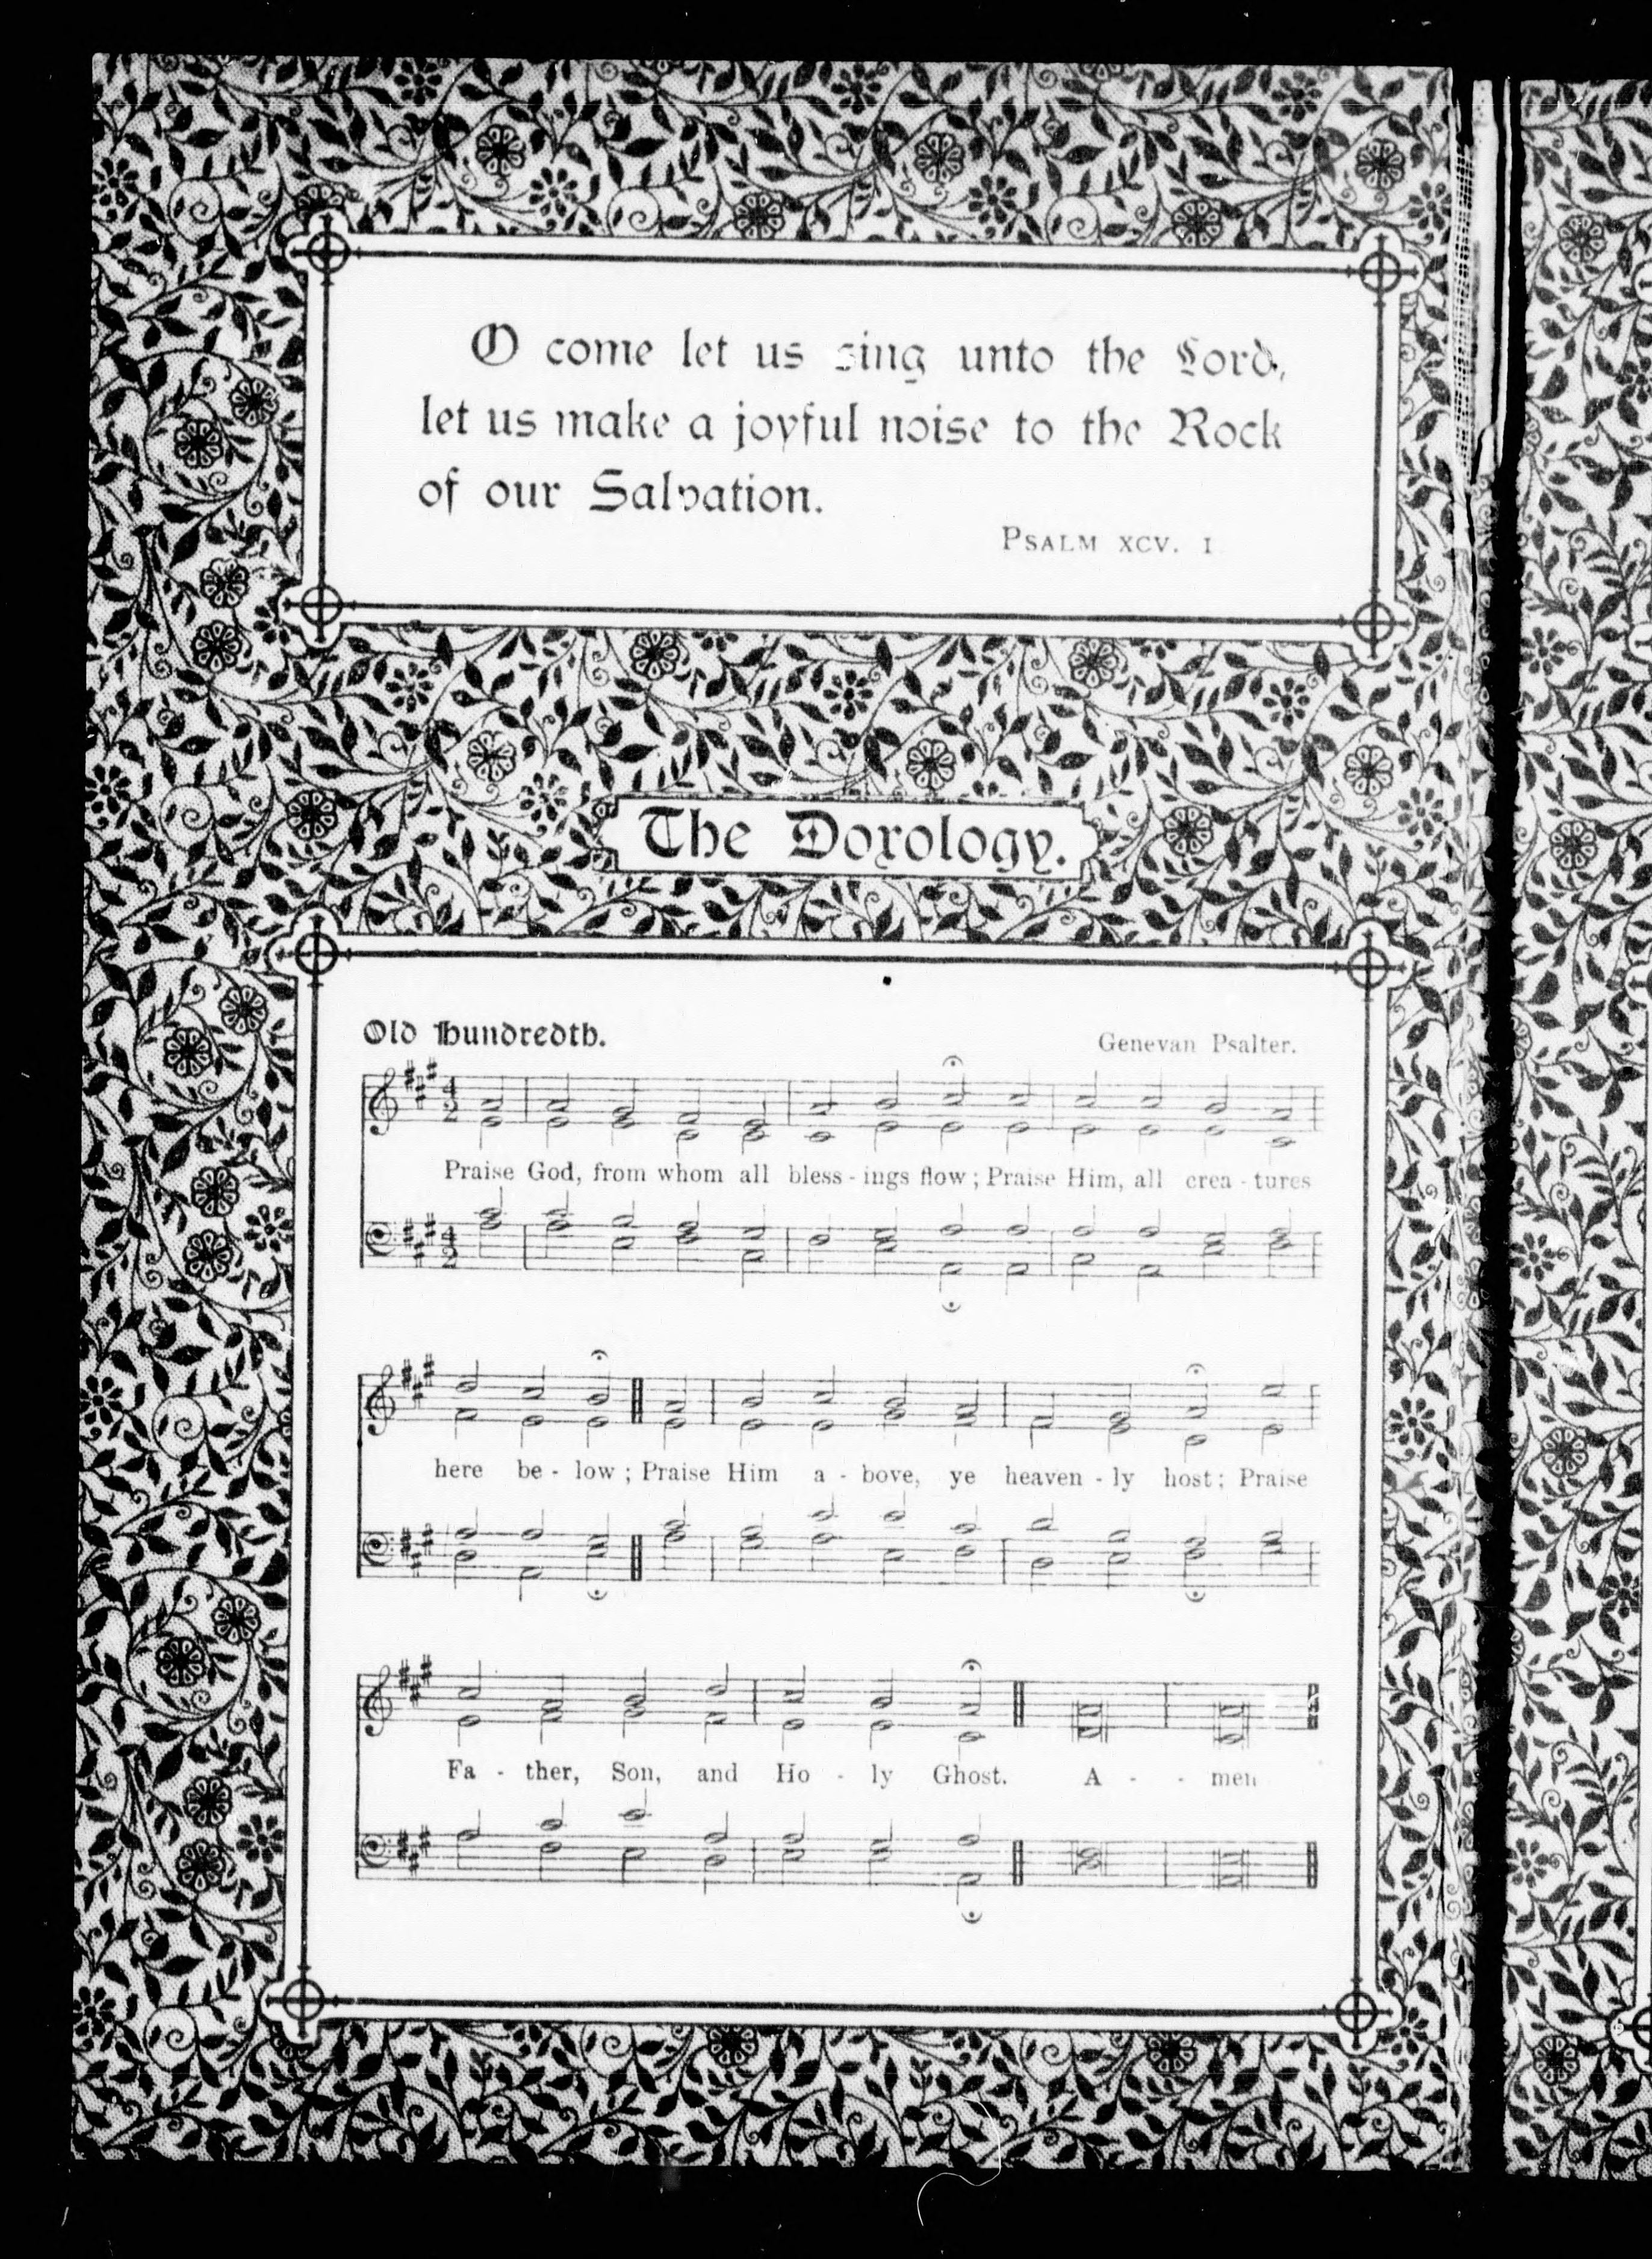 O come let us sing unto the Lord,
let us make a joyful noise to the Rock
of our Salvation.
PSALM XCV. I
The Doxology.
Old Hundredth.
Genevan Psalter.
Praise God, from whom all bless - ings flow ; Praise Him, all crea - tures
here be - low ; Praise Him a - bove, ye heaven - ly host ; Praise
Fa - ther, Son, and Ho - ly Ghost. A - - men